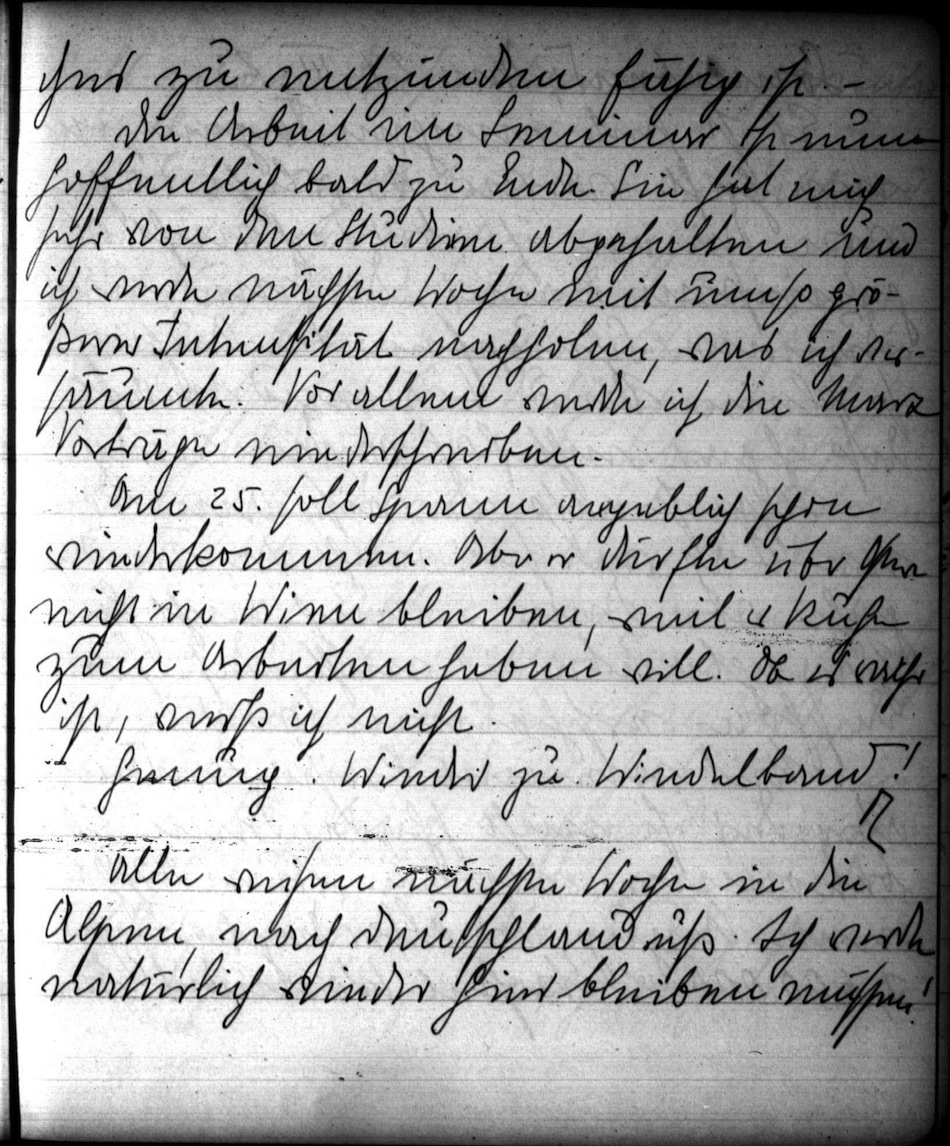 uns zu entzünden fähig ist. –
Die Arbeit im Seminar ist nun
hoffentlich bald zu Ende. Sie hat mich
sehr von den Studien abgehalten und
ich werde nächste Woche mit umso grö-
ßerer Intensität nachholen, was ich ver-
säumte. Vor allem werde ich die Marx
Vorträge niederschreiben.
Am 25. soll Spann angeblich schon
wiederkommen. Aber er dürfte über Ostern
nicht in Wien bleiben, weil er Ruhe
zum Arbeiten haben will. Ob es wahr
ist, weiß ich nicht.
Genug. Wieder zu Windelband!
Alle reisen nächste Woche in die
Alpen, nach Deutschland usf. Ich werde
natürlich wieder hier bleiben müssen!